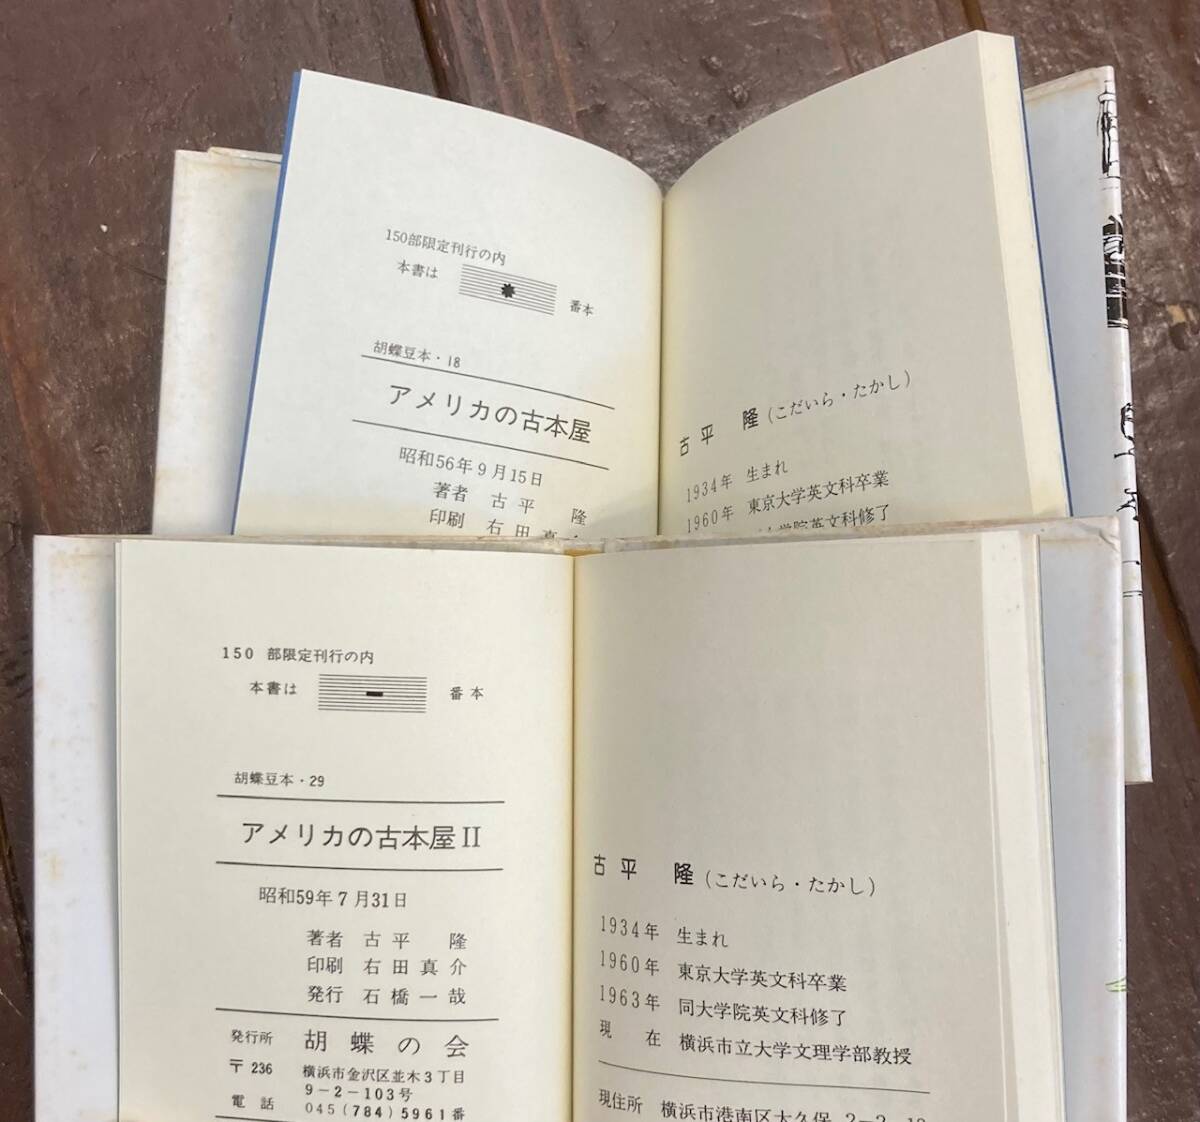 150部限定刊行の内
本書は 番本
胡蝶豆本・18
アメリカの古本屋
昭和56年9月15日
著者 古平 隆
印刷 右田真
古平 隆 (こだいら・たかし)
1934年 生まれ
1960年 東京大学英文科卒業
大学院英文科修了
150 部限定刊行の内
本書は 番本
胡蝶豆本・29
アメリカの古本屋II
昭和59年7月31日
著者 古平 隆
印刷 右田真介
発行 石橋一哉
発行所 胡蝶の会
〒236 横浜市金沢区並木3丁目
9-2-103号
電話 045 (784) 5961番
古平 隆 (こだいら・たかし)
1934年 生まれ
1960年 東京大学英文科卒業
1963年 同大学院英文科修了
現 在 横浜市立大学文理学部教授
現住所 横浜市港南区大久保 2-2